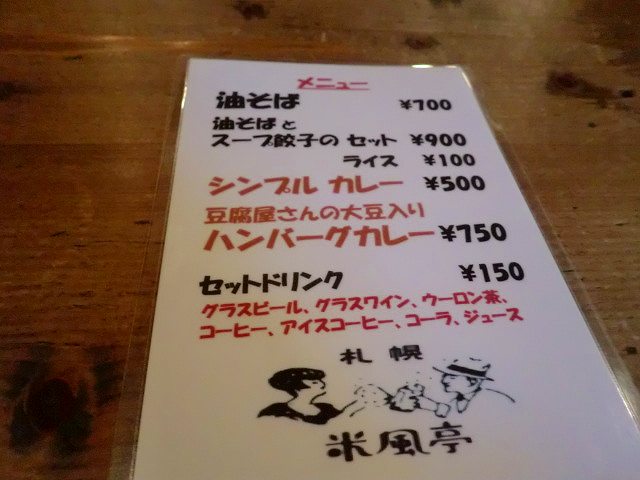 メニュー
油そば ¥700
油そばと
スープ餃子の セット ¥900
ライス ¥100
シンプル カレー ¥500
豆腐屋さんの大豆入り
ハンバーグカレー ¥750
セットドリンク ¥150
グラスビール、グラスワイン、ウーロン茶、
コーヒー、アイスコーヒー、コーラ、ジュース
札幌
米風亭